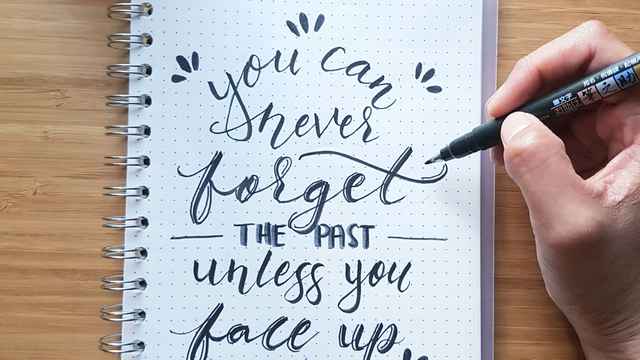 you can
never
forget
THE PAST
unless you
face up